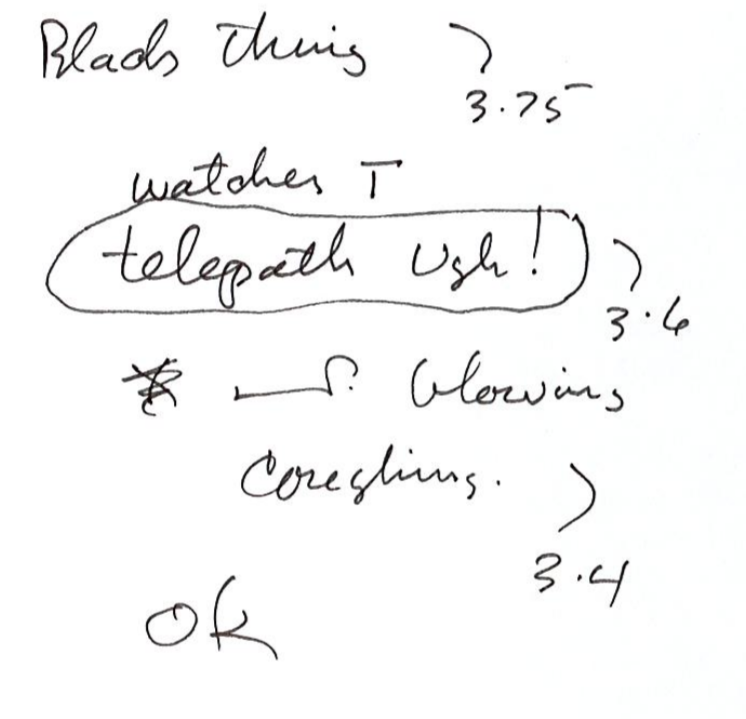 Blach thing
3.75
watches T
telepath Ugh!
3.6
blowing
Coughing.
3.4
OK